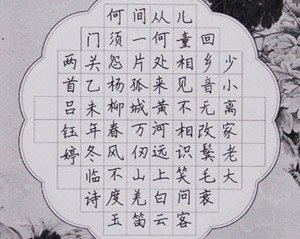 少小离家老大
回乡音无改鬓毛衰
儿童相见不相识笑问客
从何处来黄河远上白云
间一片孤城万仞山羌笛
何须怨杨柳春风不度玉
门关乙未年冬临诗
两首吕钰婷